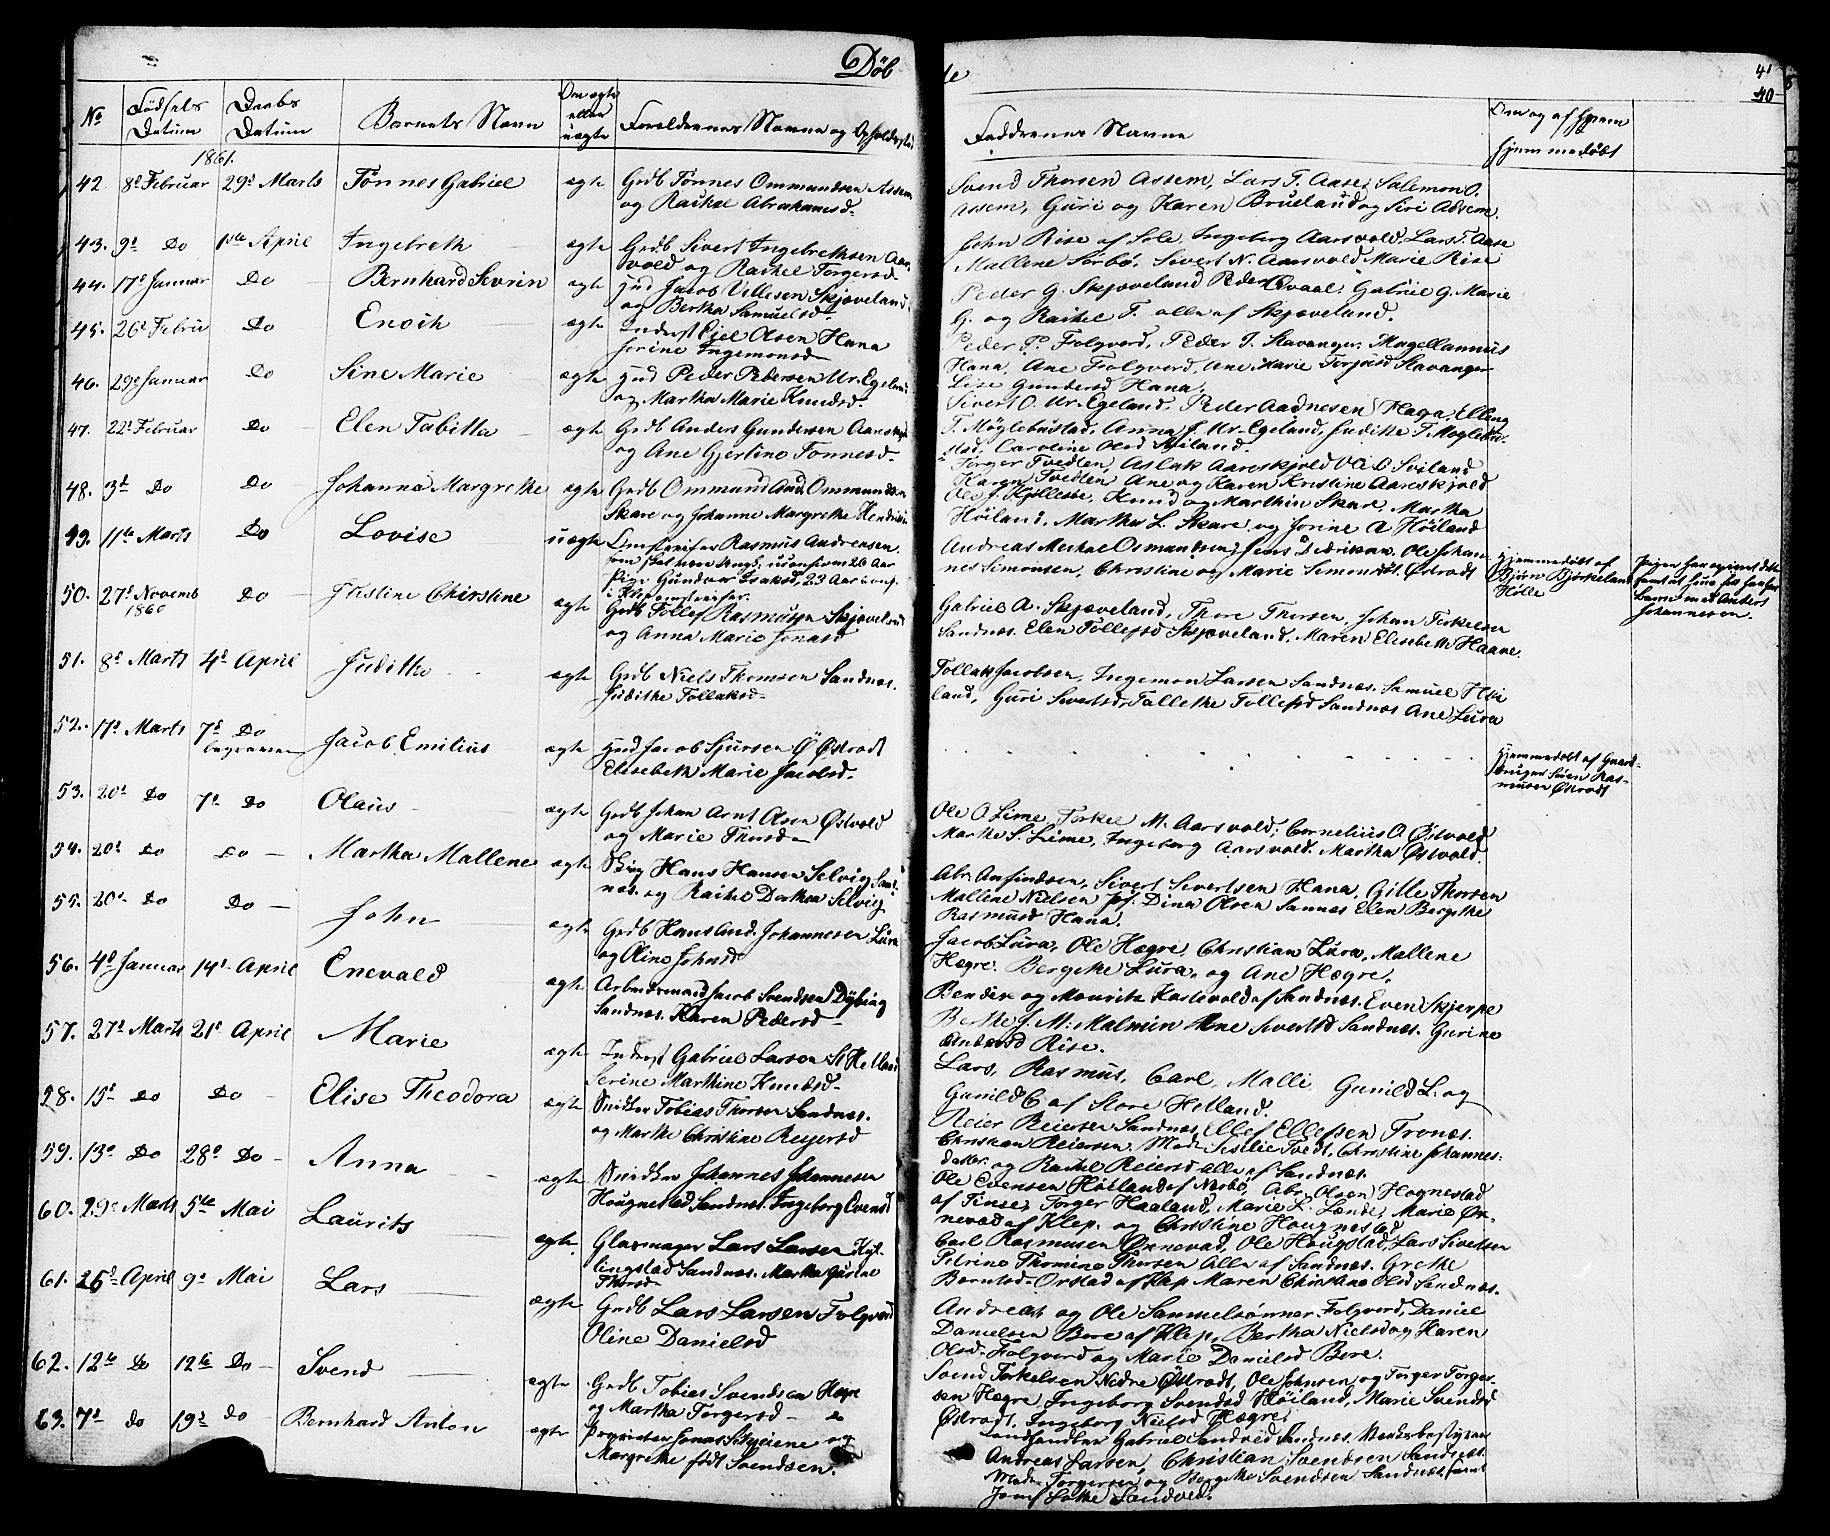 Döbte
41
40
No
Födsels Datum
Daabs Datum
Barnets Navn
Om ægte eller uægte
Forældrenes Navne og Opholdssted
Faddernes Navne
Om og af hvem hjemmedöbt
1861.
42. 8d Februar 29d Marts Tönnes Gabriel ægte Grdb Tönnes Ommundsen Assem
og Rachel Abrahamsd.
Svend Thorsen Assem, Lars T. Aase, Salemon O.
Assem, Guri og Karen Brueland og Siri Assem.
43. 9d Do 1ste April Ingebreth ægte Grdb Sivert Ingebrethsen Aars
vold og Rachel Torgersd
John Rise af Sole, Ingeborg Aarsvold, Lars T. Aase
Mallene Sörbö, Sivert N. Aarsvold, Marie Rise
44. 17d Januar Do Bernhard Severin ægte Hmd Jacob Villesen Skjæveland
og Bertha Samuelsd
Peder G. Skjæveland Peder Qvaal, Gabriel G. Marie
G. og Rachel T. alle af Skjæveland.
45. 26d Febru Do Enoch ægte Inderst Ejel Olsen Hana
Serine Ingemonsd
Peder P. Folgverd, Peder T. Stavanger, Magellannus
Hana, Ane Folgverd, Ane Marie Torjusd Stavanger
Lise Gundersd Hana.
46. 29d Januar Do Sine Marie ægte Hmd Peder Pedersen Ur. Egeland
og Martha Marie Knudsd.
Sivert O. Ur. Egeland, Peder Aadnesen Haga, Elling
T. Möglebustad, Anna J. Ur. Egeland, Judithe T. Möglebu-
stad, Caroline Olsd Sviland.
47. 22d Februar Do Elen Tabitta ægte Grdb Anders Gundersen Aareskjold
og Ane Gjertine Tönnesd.
Torger Tvedten, Aslak Aareskjold Ole O Sviland
Karen Tvedten, Ane og Karen Kristine Aareskjold
48. 3d Do Do Johanna Margrethe ægte Grdb Ommund Andr. Ommundsen
Skare og Johanne Margrethe Hendriksd
Ole J. Kyllesbe, Knud og Marthin Skare, Martha
Höiland, Martha L. Skare, og Jorine A Höiland
49. 11te Marts Do Lovise uægte Omstreifer Rasmus Andreasen
Pige Gundvor Isaksd, 23 Aar conf.
i Klep omstreifer.
Andreas Mechal Osmundsen, Jens Didriksen, Ole Johan-
nes Simonsen, Christine og Marie Simonsd. Östradt
Hjemmedöbt af
Björn Bjorkeland
Hölle
Pigen har opgivet dette
Barn med Anders
Johannesen.
50. 27d Novemb
1860 Do Justine Chirstine ægte Grdb Tollef Rasmusen Skjæveland
og Anna Marie Jonasd
Gabriel A. Skjæveland, Thore Thorsen, Johan Torkelsen
Sandnæs. Elen Tollefsd Skjæveland, Maren Elisebeth Haave.
51. 8d Marts 4d April Judithe ægte Grdb Niels Thomsen Sandnæs.
Judithe Tollaksd
Tollak Jacobsen, Ingemon Larsen Sandnæs. Samuel Hei
land, Guri Sivertsd, Tallethe Tollefsd Sandnæs Ane Lura
52. 17d Marts 7d Do
begraven Jacob Emilius ægte Hmd Jacob Sjursen Ö Östradt
Elisebeth Marie Jacobsd.
Hjemmedöbt af Gaard-
bruger Sören Ras-
musen Östradt
53. 20d Do 7d Do Olaus ægte Grdb Johan Arnt Asen Östvold
og Marie Thorsd
Ole O Lime, Torkel M. Aarsvold, Cornelius O Östvold
Marthe S. Lime, Ingeborg Aarsvold. Martha Östvold.
54. 20d Do Do Martha Mallene ægte Hans Hansen Selvig Sand-
næs. og Rachel Dorthea Selvig
Abr. Anfindsen, Sivert Sivertsen Hana, Gitle Thorsen
Mallene Nielsen, Dina Olsen Sannæs Elen Bergithe
Rasmusd Hana.
55. 20d Do Do John ægte Grdb Hans Lind. Johannesen Lura
og Oline Johnsd
Jacob Lura, Ole Hægre, Christian Lura, Mallene
Hægre. Bergithe Lura, og Ane Hægre.
56. 4d Januar 14d April Enevald ægte Arbeidsmand Jacob Svendsen Dybing
Sandnæs. Karen Pedersd
Bendix og Mauritz Kartevold af Sandnæs. Even Skjerpe
Berthe J. M. Malmin Ane Sivertsd Sandnæs. Gurine
Andersd Rise.
57. 27d Marts 21d April Marie ægte Inderst Gabriel Larsen St Helland
Serine Marthine Knudsd
Lars, Rasmus, Carl, Malli, Gunild L. og
Gunild C af Store Helland.
58. 15d Do Do Elise Theodora ægte Snidker Tobias Thorsen Sandnæs.
og Marthe Christine Reijersd
Reier Reiersen Sandnæs, Ellef Ellefsen Tronæs.
Christian Reiersen. Mad. Sesilie Tvedt, Christine Johannes-
datter. og Rachel Reiersd alle af Sandnæs.
59. 13d Do 28d Do Anna ægte Snidker Johannes Johannesen
Hougnestad Sandnæs. Ingeborg Evensd
Ole Evensen Höiland af Nærbö, Abr. Olsen Hognestad
af Tinse, Torger Haaland, Marie L. Lende, Marie Ör-
nevad af Klep. og Christine Hougnestad
60. 29d Marts 5te Mai Laurits ægte Glarmager Lars Larsen Kyl-
lingstad Sandnæs. Martha Gurine
Thorsd
Carl Rasmusen Örnevad, Ole Hougstad, Lars Sivertsen
Petrine Thomine Thorsen Alle af Sandnæs. Grethe
Berntsd. Orstad af Klep Maren Christine Olsd Sandnæs.
61. 26d April 9d Mai Lars ægte Grdb Lars Larsen Folgverd
Oline Danielsd
Andreas og Ole Sammelsönner Folgverd, Daniel
Danielsen Bore af Klep, Bertha Nielsd og Karen
Olsd. Folgverd og Marie Danielsd Bore.
62. 12te Do 12te Do Svend ægte Grdb Tobias Svendsen Hægre
og Martha Torgersd Do
Svend Torkelsen Nedre Östradt, Ole Johnsen og Torger Torger-
sen Hægre, Ingeborg Svendsd Höiland, Marie Svendsd
Östradt, Ingeborg Nielsd Hægre.
63. 7d Do 19d Do Bernhard Anton ægte Proprietær Jonas og
Margrethe födt Svendsen.
Landhandler Gabriel Sandved Sandnæs, Værksbestyrer
Andreas Larsen, Christian Svendsen Sandnæs.
Mad. Torgersen og Bergithe Svendsen Sandnæs, samt
Jomf. Sandved.